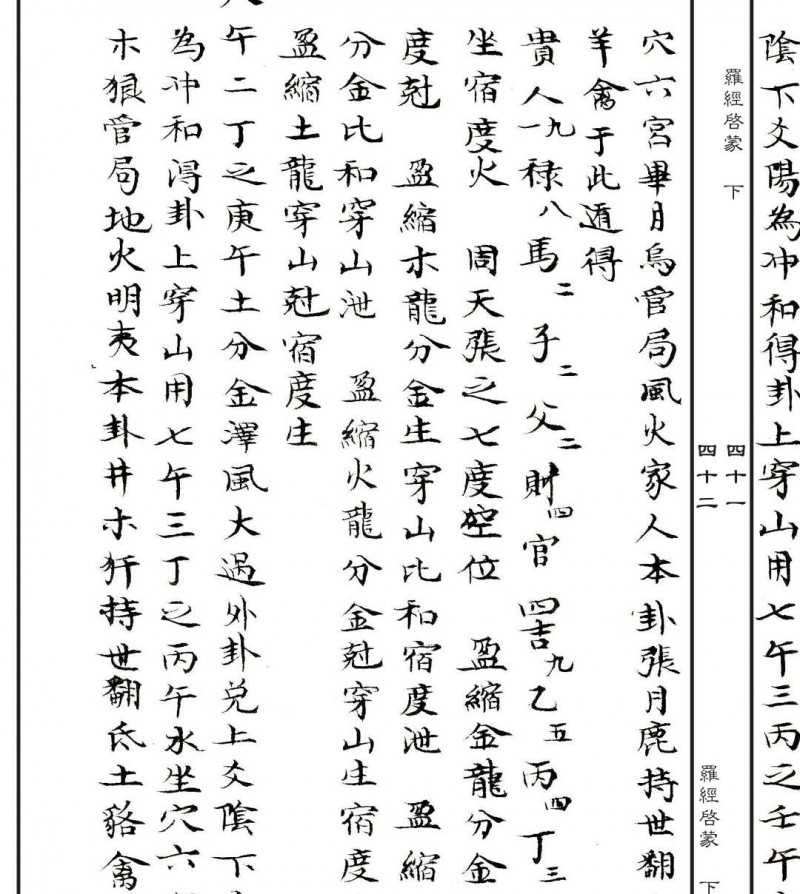 陰下爻陽為冲和得卦上穿山用七午三丙之壬午
羅經啓蒙 下
四十一
四十二
羅經啓蒙 下
穴六宮畢月烏管局風火家人本卦張月鹿持世翻
羊禽于此遁得
貴人一九祿八馬二子二父二財四官四吉九乙五丙四丁三
坐宿度火 周天張之七度空位 盈縮金龍分金
度尅 盈縮木龍分金生穿山比和宿度泄 盈縮
分金比和穿山泄 盈縮火龍分金尅穿山生宿度
盈縮土龍穿山尅宿度生
午二丁之庚午土分金澤風大過外卦兌上爻陰下
為冲和得卦上穿山用七午三丁之丙午水坐穴六
木狼管局地火明夷本卦井木犴持世翻氐土貉禽